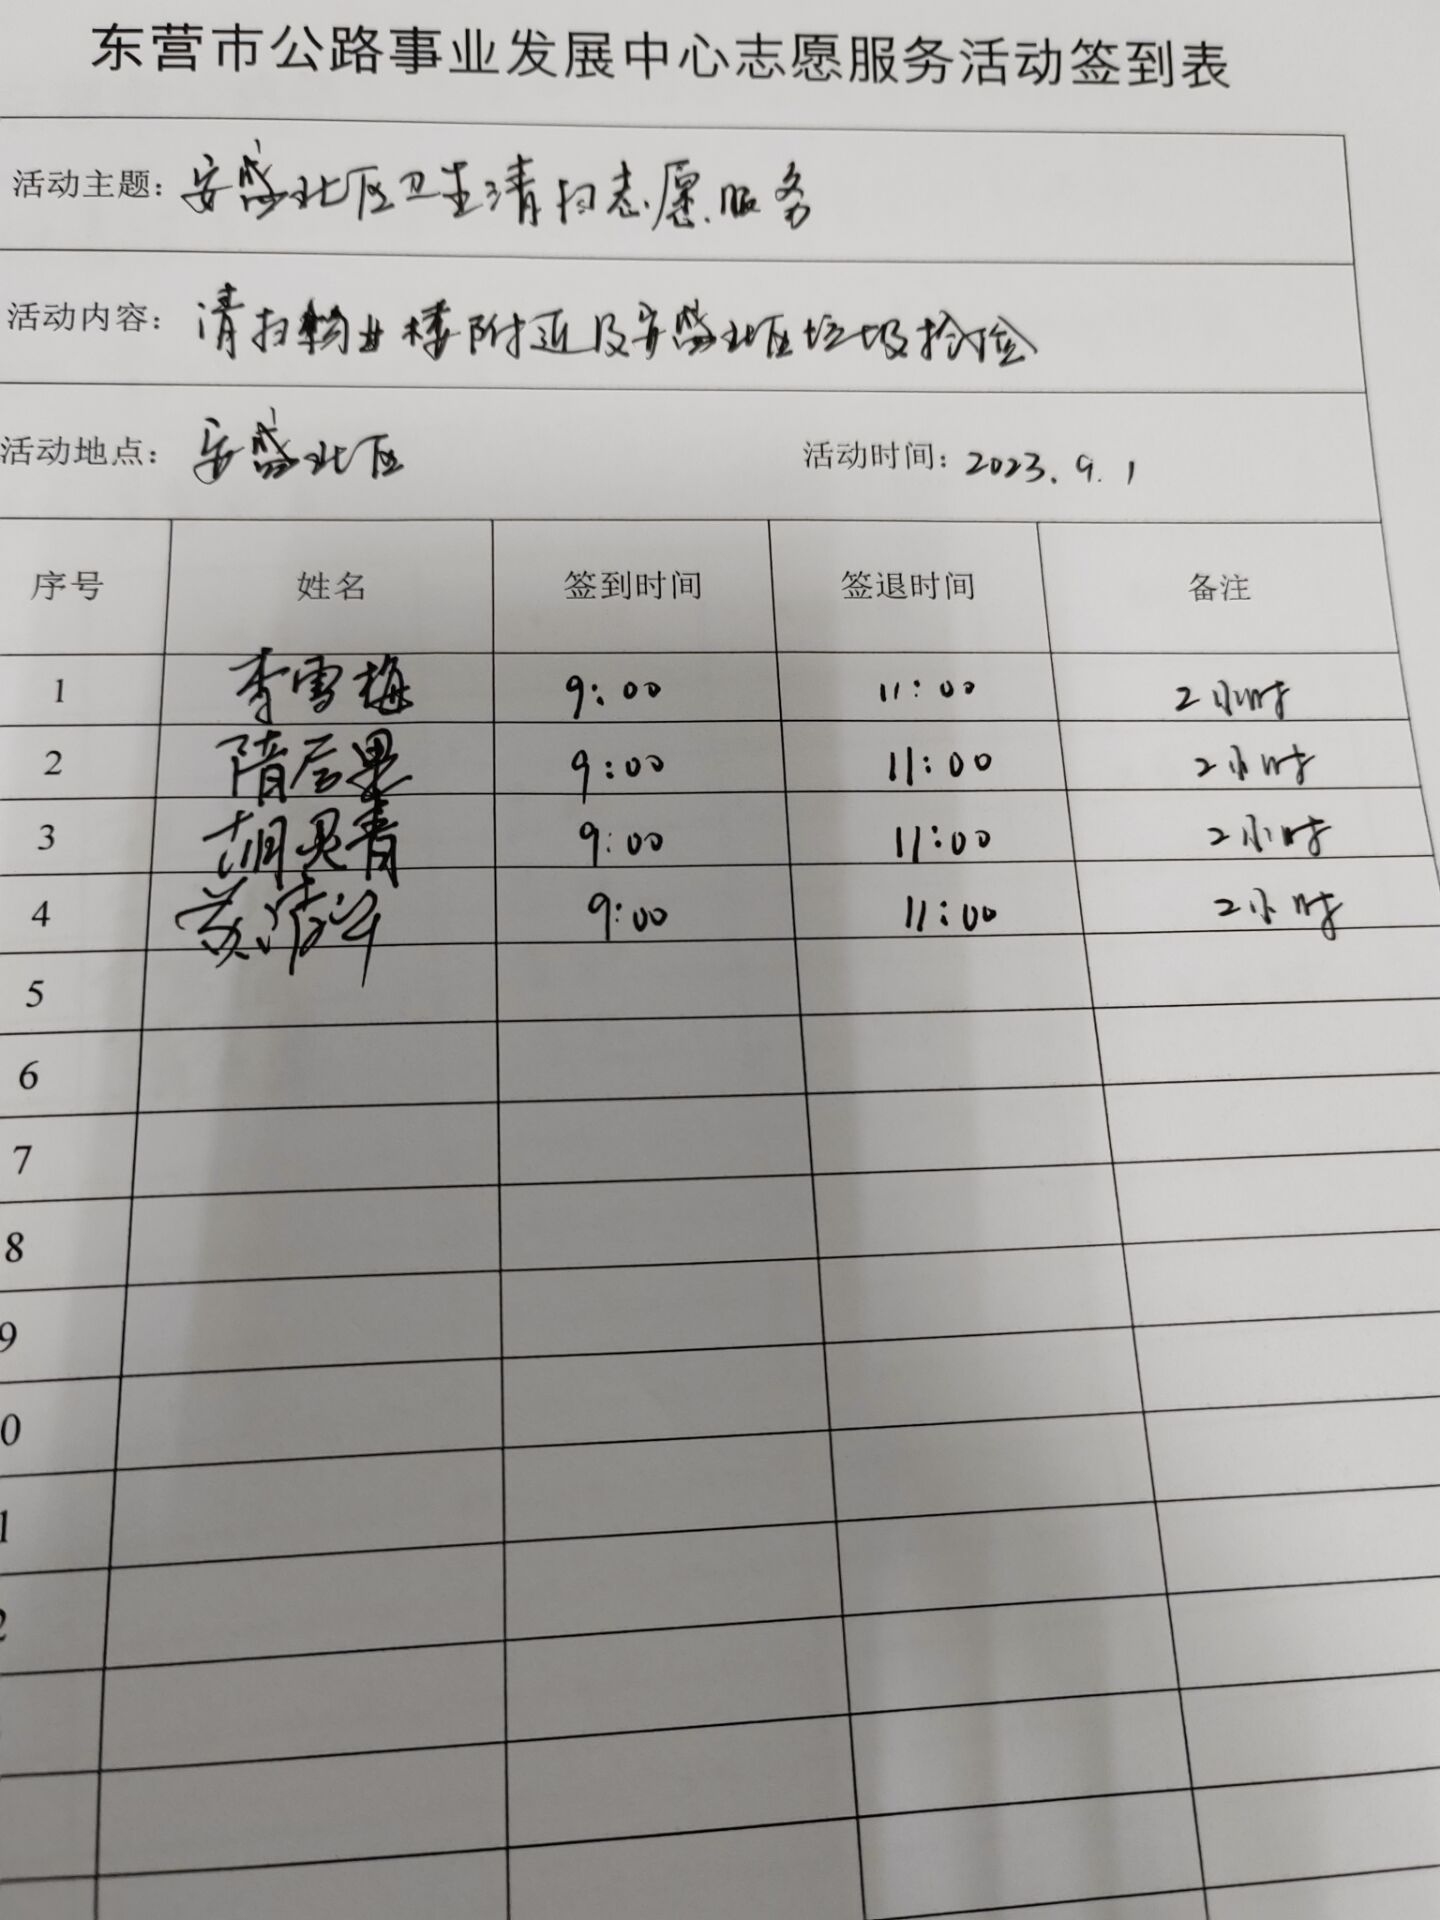 东营市公路事业发展中心志愿服务活动签到表
活动主题：安盛北区卫生清扫志愿服务
活动内容：清扫物业楼附近及安盛北区垃圾捡捡
活动地点：安盛北区 活动时间：2023.9.1
序号 姓名 签到时间 签退时间 备注
1 李雪梅 9:00 11:00 2小时
2 隋 9:00 11:00 2小时
3 胡 青 9:00 11:00 2小时
4 9:00 11:00 2小时
5
6
7
8
9
0
1
2